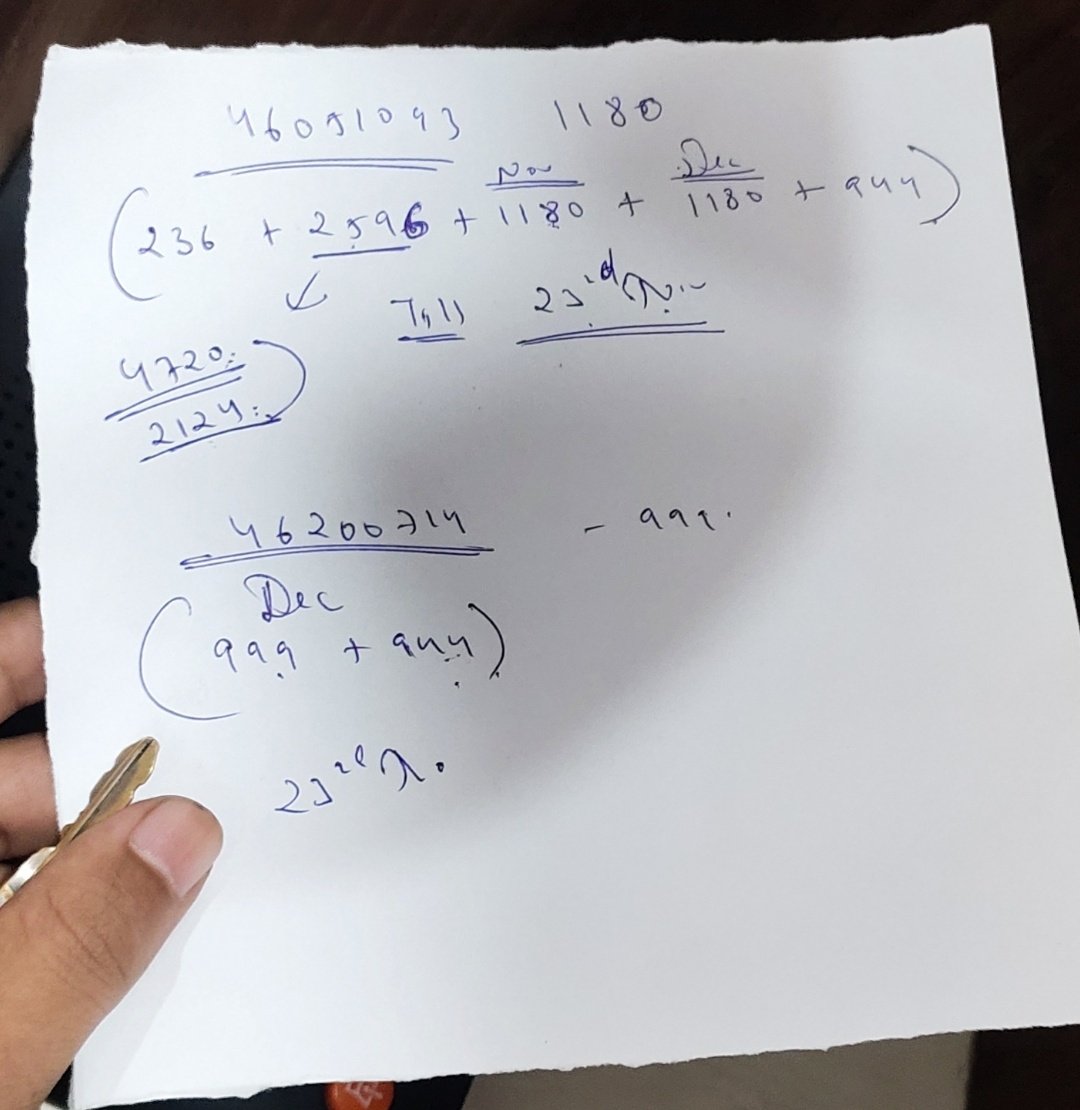 46051093 1180
Nov Dec
(236 + 2596 + 1180 + 1180 + 944)
Till 23rd Nov
4720
2124
46200714 - 999.
Dec
(999 + 944)
23rd